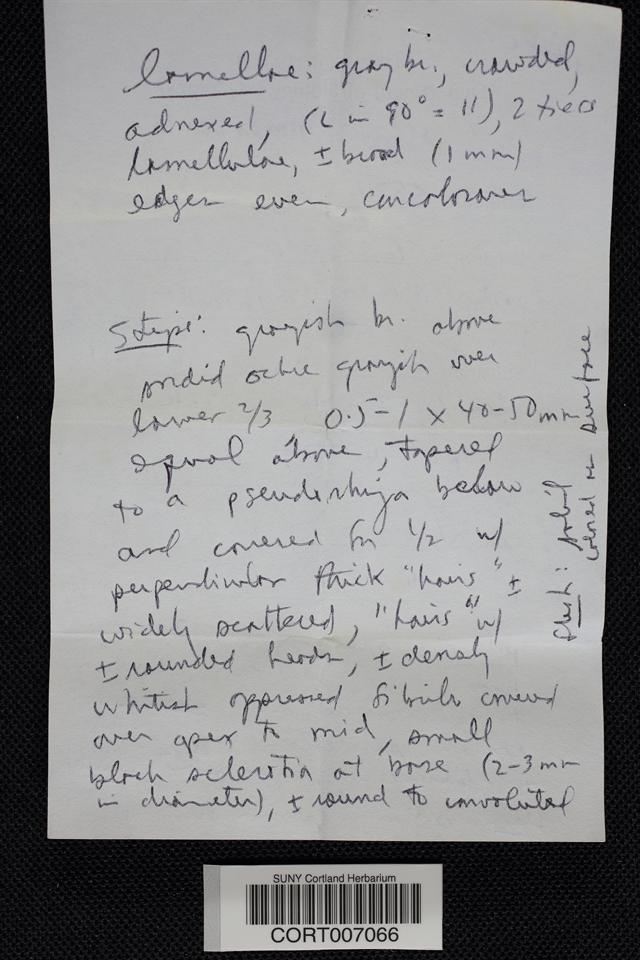 Lamellae: gray br., crowded,
adnexed, (L in 90° = 11), 2 tiers
lamellulae, ± broad (1 mm)
edges even, concolorous
Stipe: grayish br. above
sordid ochre grayish over
lower 2/3 0.5-1 x 40-50 mm
equal above, tapered
to a pseudorhiza below
and covered for 1/2 w/
perpendicular thick "hairs" ±
widely scattered, "hairs" w/
± rounded heads, ± densely
whitish appressed fibrils covered
over apex to mid, small
black sclerotia at base (2-3 mm
in diameter), ± round to convoluted
flesh: solid
colored as surface
SUNY Cortland Herbarium
CORT007066